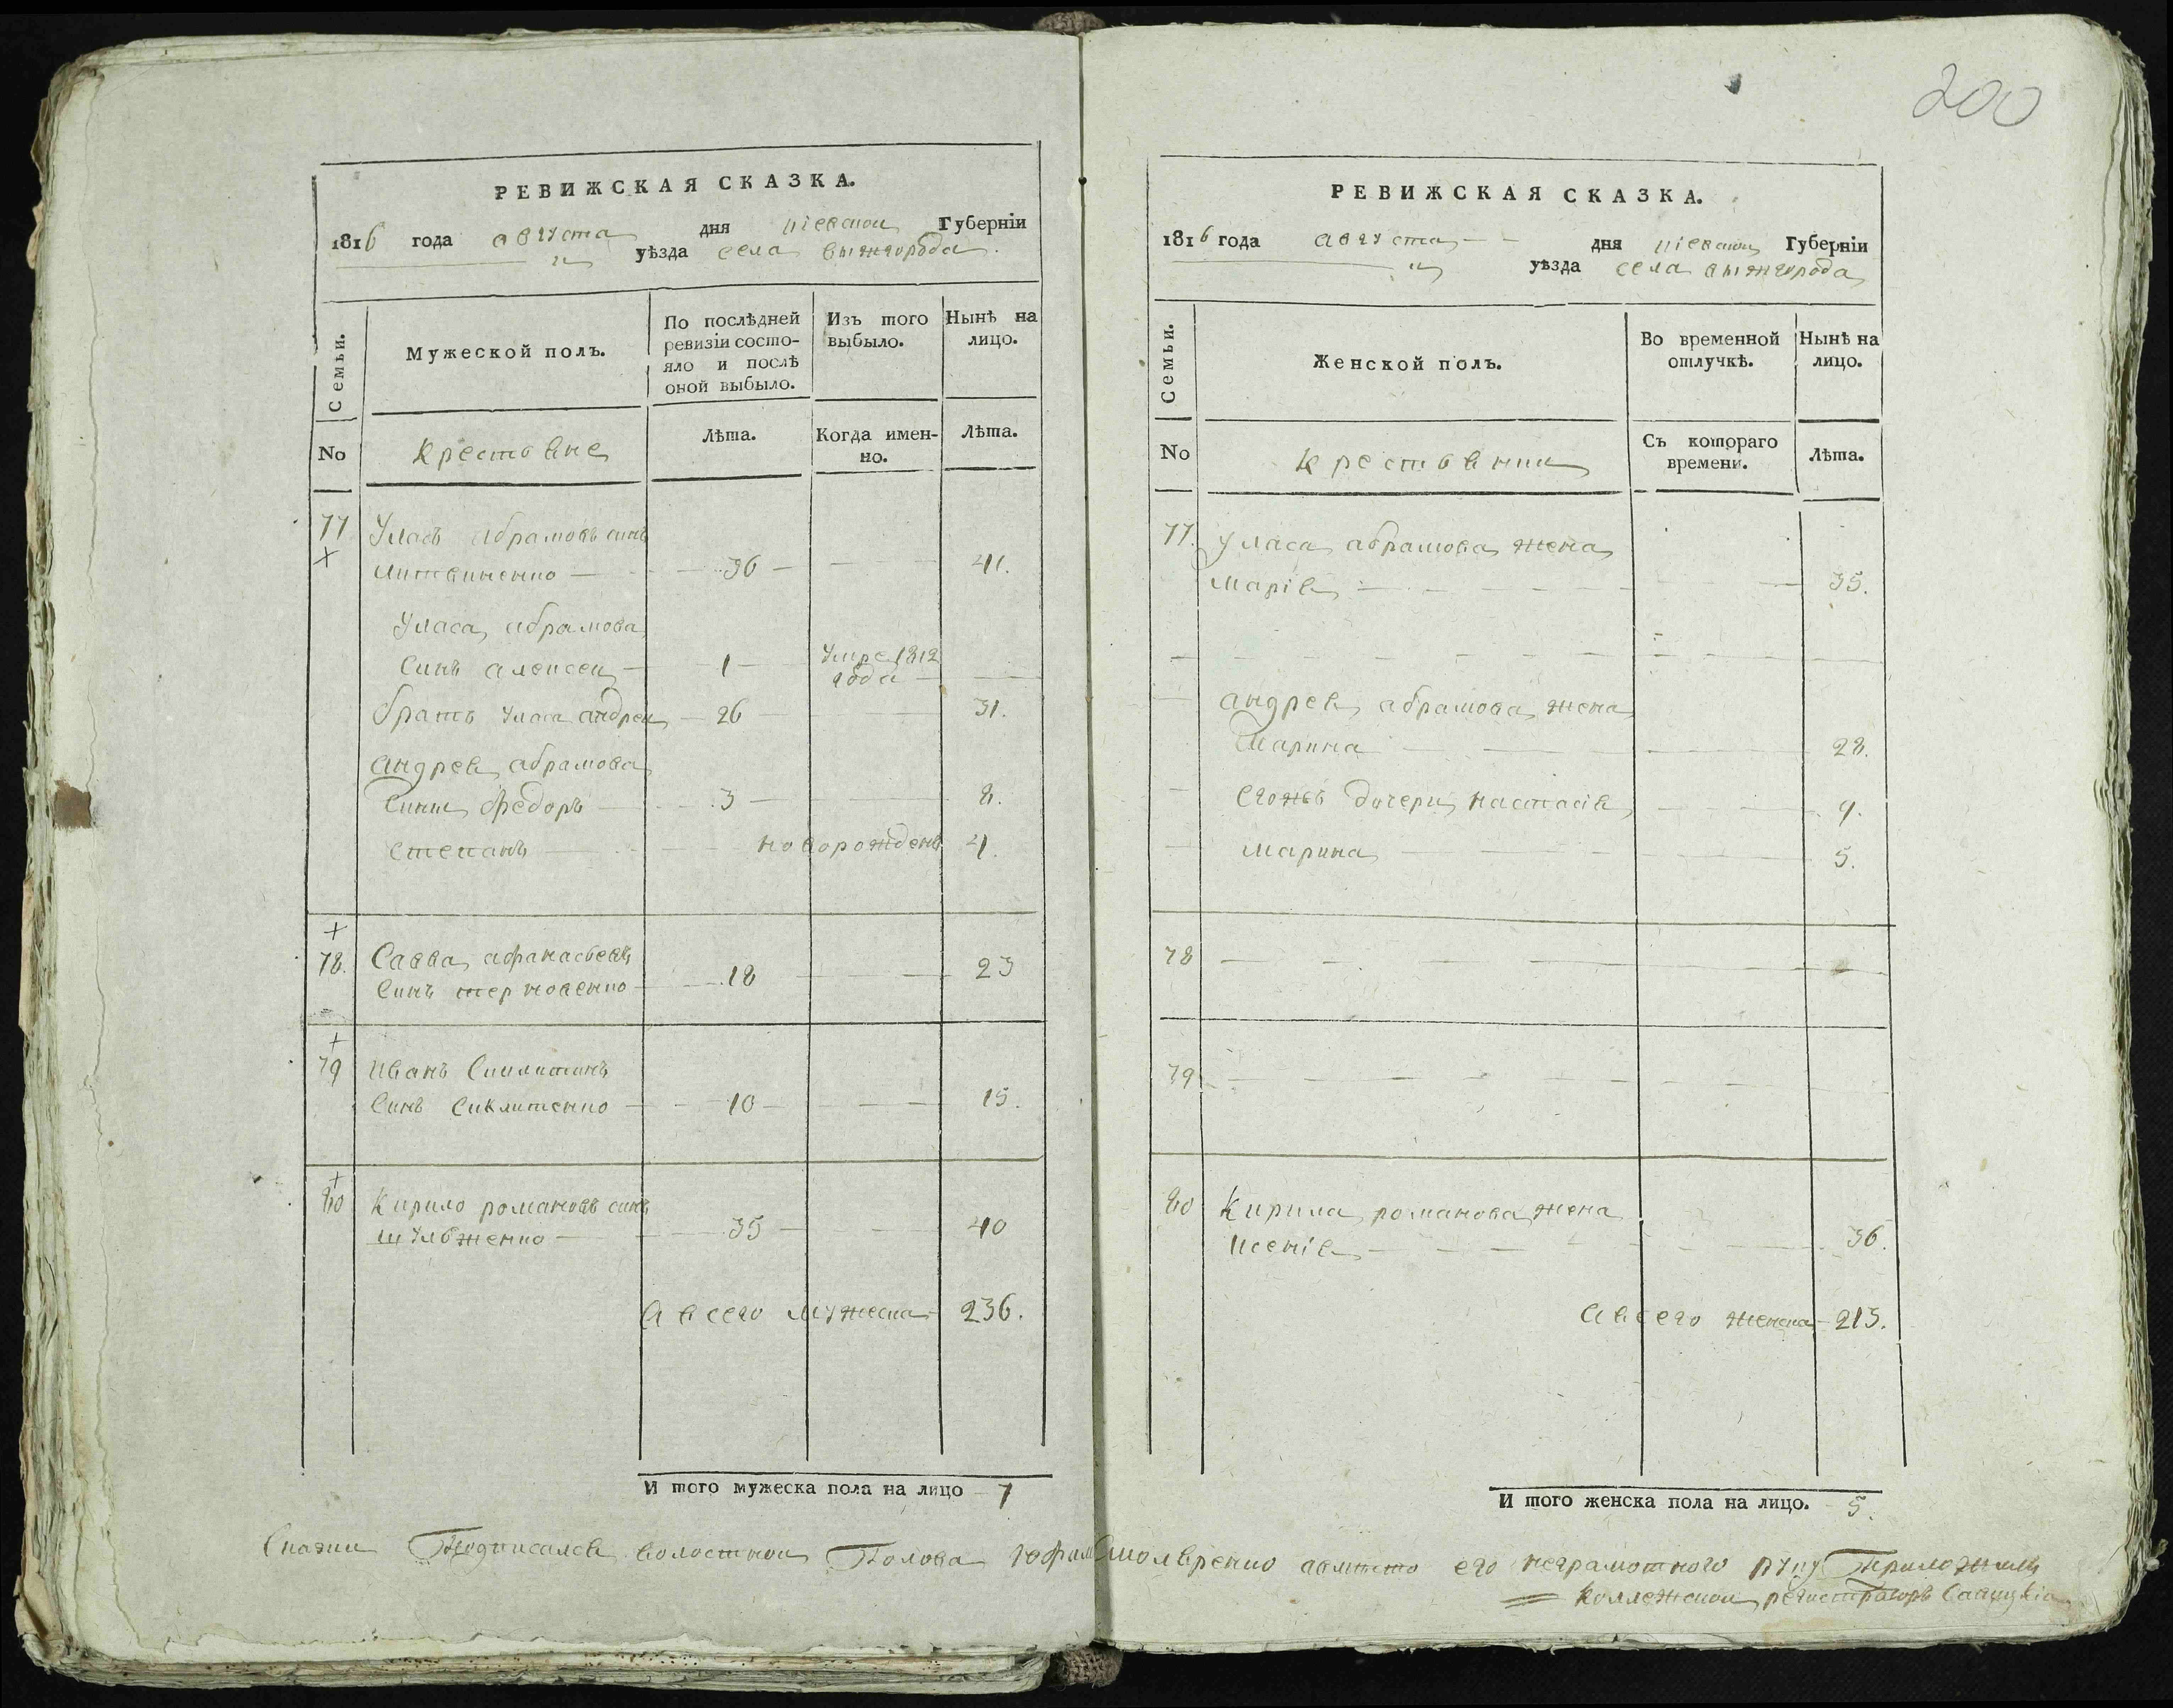 200
РЕВИЖСКАЯ СКАЗКА.
1816 года августа дня киевской Губерніи
уѣзда села вышгорода
Семьи.
Мужеской полъ.
По послѣдней ревизіи состо-
яло и послѣ оной выбыло.
Изъ того выбыло.
Нынѣ на лицо.
No
крестьяне
Лѣта.
Когда имен-
но.
Лѣта.
77 Уласъ абрамовъ синъ
литвиненко 36 41.
Уласа абрамова
синъ алексей 1 Умре 1812 года
братъ Уласа андрей 26 31.
андрея абрамова
сини федоръ 3 8.
степанъ новорожденъ 4.
78. Савва афанасьевъ
синъ терновенко 18 23
79 иванъ
синъ сиклитенко 10 15.
80 Кирило романовъ синъ
шульженко 35 40
а всего мужеска 236.
И того мужеска пола на лицо 7
РЕВИЖСКАЯ СКАЗКА.
1816 года августа дня киевской Губерніи
уѣзда села вышгорода
Семьи.
Женской полъ.
Во временной отлучкѣ.
Нынѣ на лицо.
No
крестьянки
Съ котораго времени.
Лѣта.
77. Уласа абрамова жена
марія 35.
андрея абрамова жена
марина 28.
егожъ дочери настасія 9.
марина 5.
78
79
80 Кирила романова жена
ксенія 36.
а всего женска 213.
И того женска пола на лицо. 5.
Сказки Подписался волостной Голова его неграмотного руку Приложилъ
Колежской регистраторъ